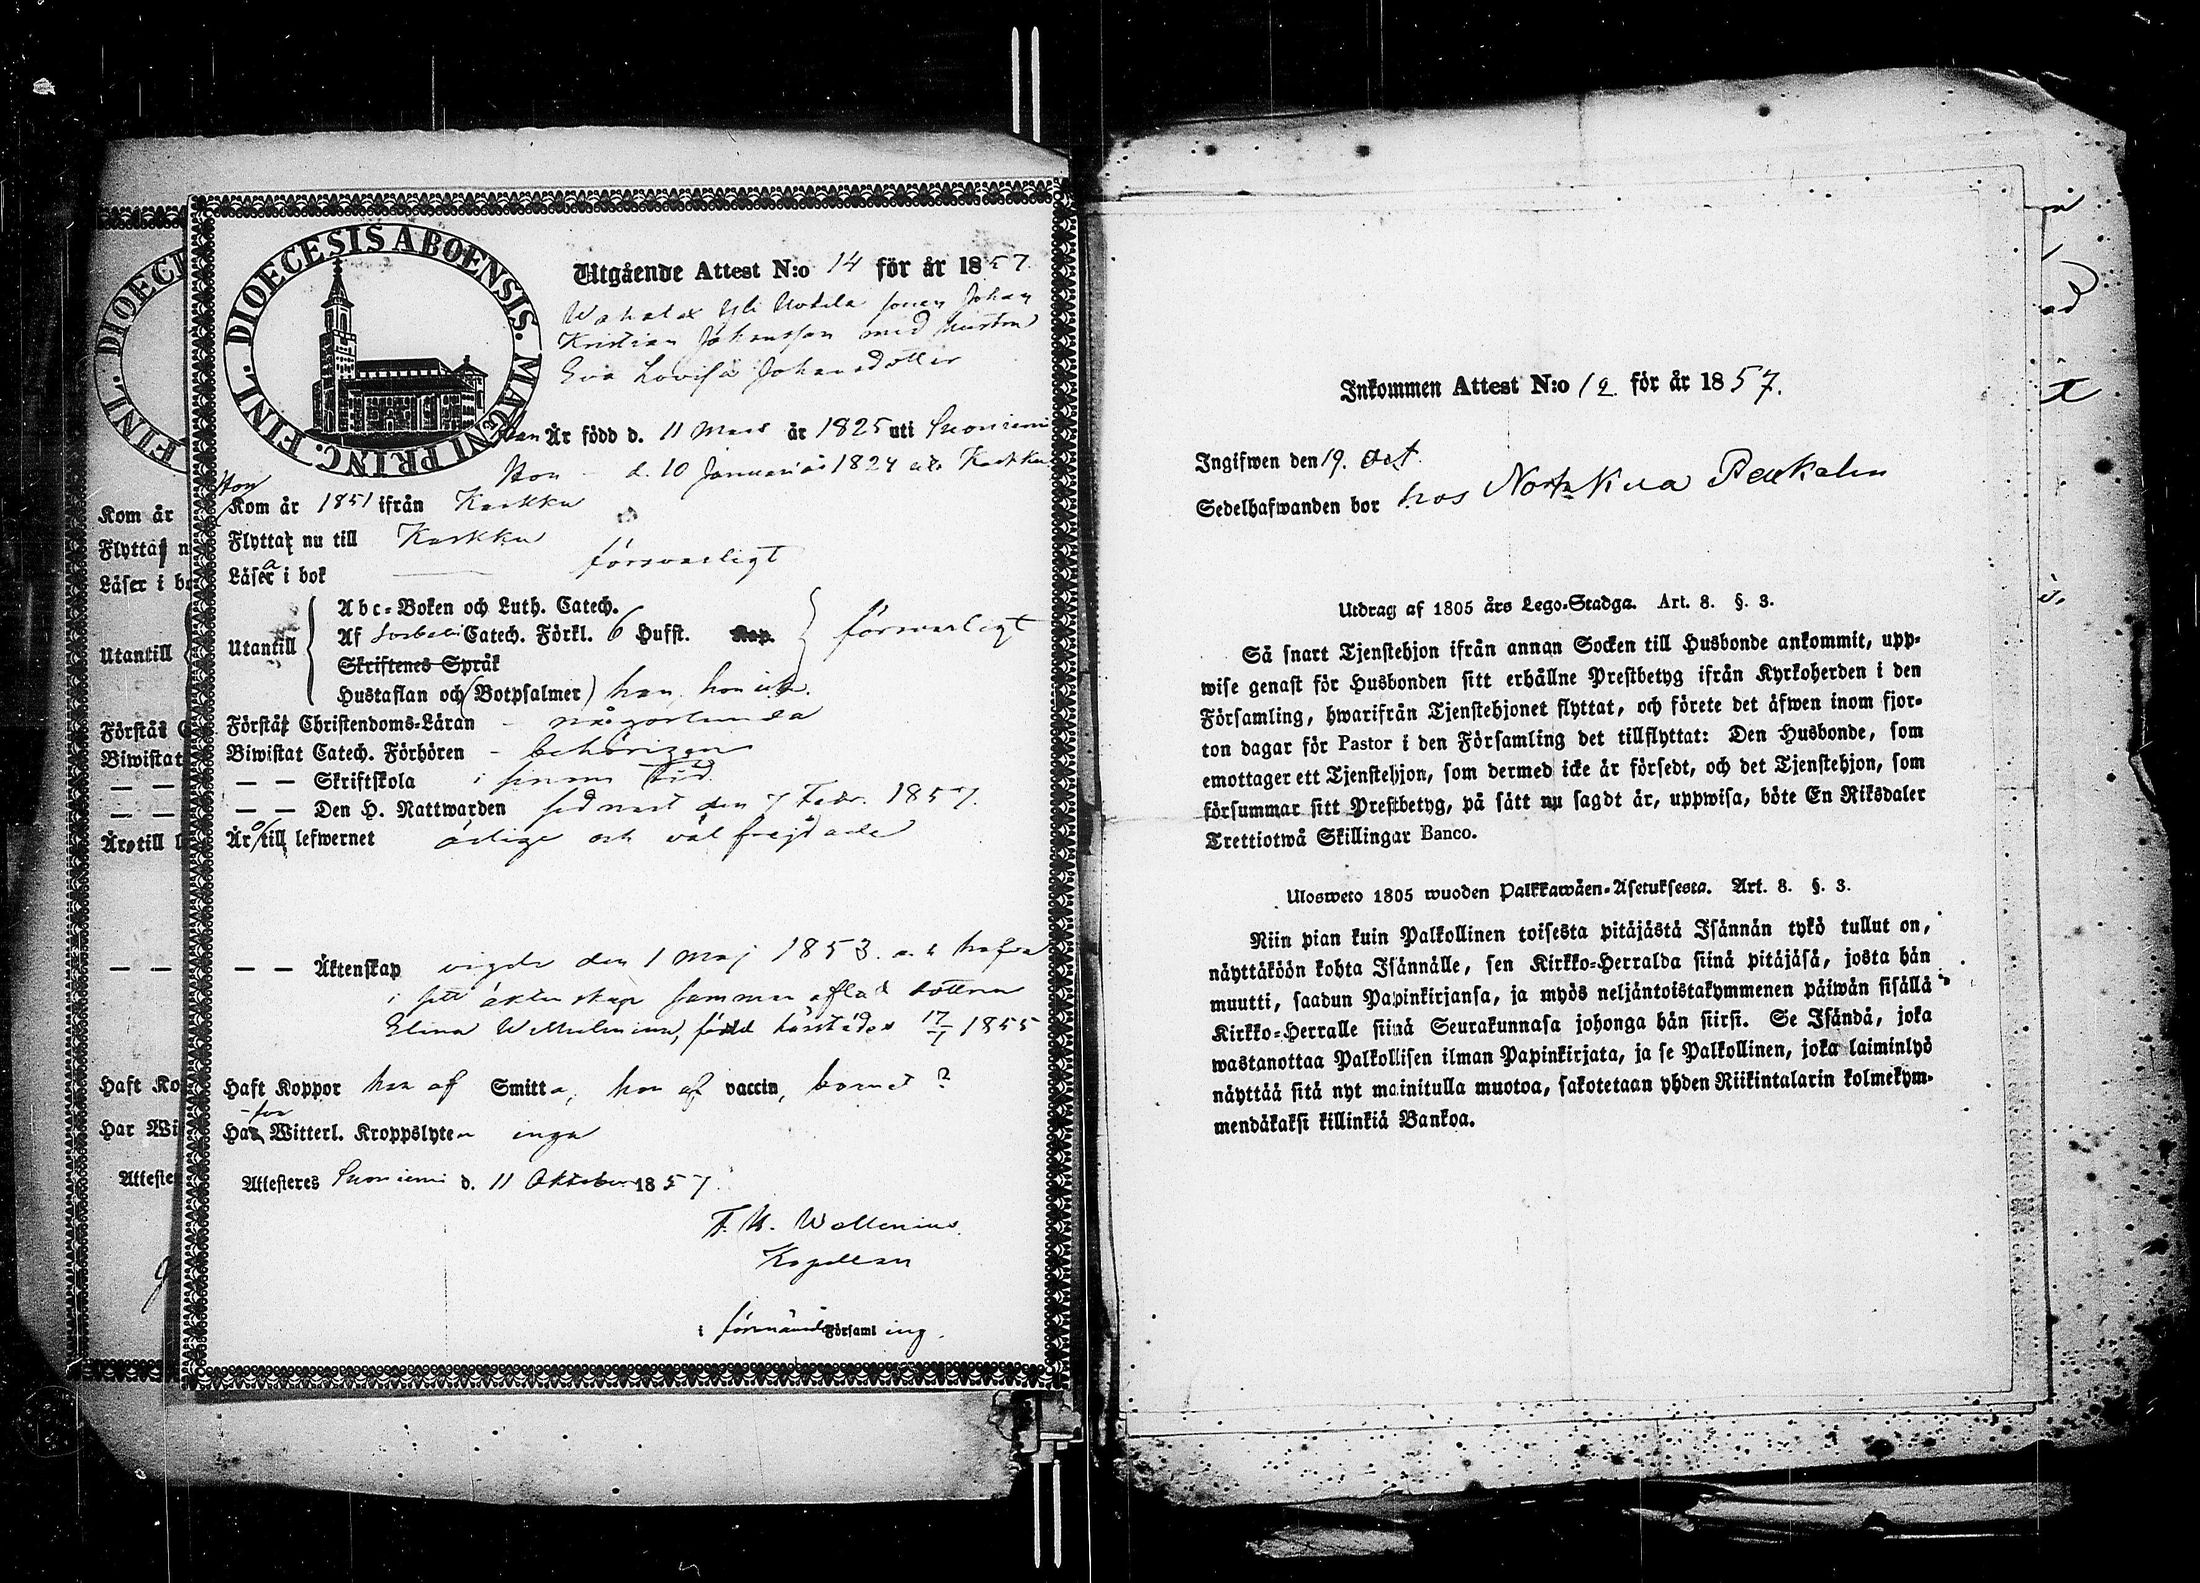 DIOECESIS ABOENSIS. MAGNI PRINC. FINL.
Utgående Attest N:o 14 för år 1857.
Yli sonen Johan
Kristian Johansson med hustru
Eva Lovisa Johansdotter
Han Är född d. 11 Mars år 1825 uti Suoniemi
Hon — d. 10 Januarius 1824 uti Karkku
Hon
Kom år 1851 ifrån Karkku
Flytta nu till Karkku
Läsa i bok — försvarligt
Utantill
Abc-Boken och Luth. Catech.
Af Catech. Förkl. 6 Hufst. Kap. försvarligt
Skriftenes Språk
Hustaflan och (Botpsalmer) han, hon icke.
Förstå Christendoms-Läran - någorlunda
Biwistat Catech. Förhören - behörigen
— — Skriftskola i sinom tid.
— — Den H. Nattwarden sednast den 7 Febr. 1857.
Äro till lefwernet ärlige och välfrejdade
— — Äktenskap vigde den 1 Maj 1853. och hafva
i sitt äktenskap samman aflat dottren
Elina Wilhelmina, född härstädes 17/7 1855
Haft Koppor han af Smitta, hon af vaccin, barnet ?
Hafva Witterl. Kroppslyten inga
Attesteres Suoniemi d. 11 Oktober 1857.
Wallenius.
Kapellan
i förenämnde Församling.
FINL. DIOECE
Kom år
Flytta n
Läser i bo
Utantill
Förstå C
Biwistat
— —
— —
Äro till l
— —
Haft Ko
Har Wi
Atteste
Inkommen Attest N:o 12 för år 1857.
Ingifwen den 19. Oct.
Sedelhafwanden bor hos
Utdrag af 1805 års Lego-Stadga. Art. 8. §. 3.
Så snart Tjenstehjon ifrån annan Socken till Husbonde ankommit, upp-
wise genast för Husbonden sitt erhållne Prestbetyg ifrån Kyrkoherden i den
Församling, hwarifrån Tjenstehjonet flyttat, och förete det äfwen inom fjor-
ton dagar för Pastor i den Församling det tillflyttat: Den Husbonde, som
emottager ett Tjenstehjon, som dermed icke är försedt, och det Tjenstehjon, som
försummar sitt Prestbetyg, på sätt nu sagdt är, uppwisa, böte En Riksdaler
Trettiotwå Skillingar Banco.
Ulosweto 1805 wuoden Palkkawäen-Asetuksesta. Art. 8. §. 3.
Niin pian kuin Palkollinen toisesta pitäjästä Isännän tykö tullut on,
näyttäköön kohta Isännälle, sen Kirkko-Herralda siinä pitäjäsä, josta hän
muutti, saadun Papinkirjansa, ja myös neljäntoistakymmenen päiwän sisällä
Kirkko-Herralle siinä Seurakunnasa johonga hän siirsi. Se Isändä, joka
wastanottaa Palkollisen ilman Papinkirjata, ja se Palkollinen, joka laiminlyö
näyttää sitä nyt mainitulla muotoa, sakotetaan yhden Riikintalarin kolmekym-
mendäkaksi killinkiä Bankoa.